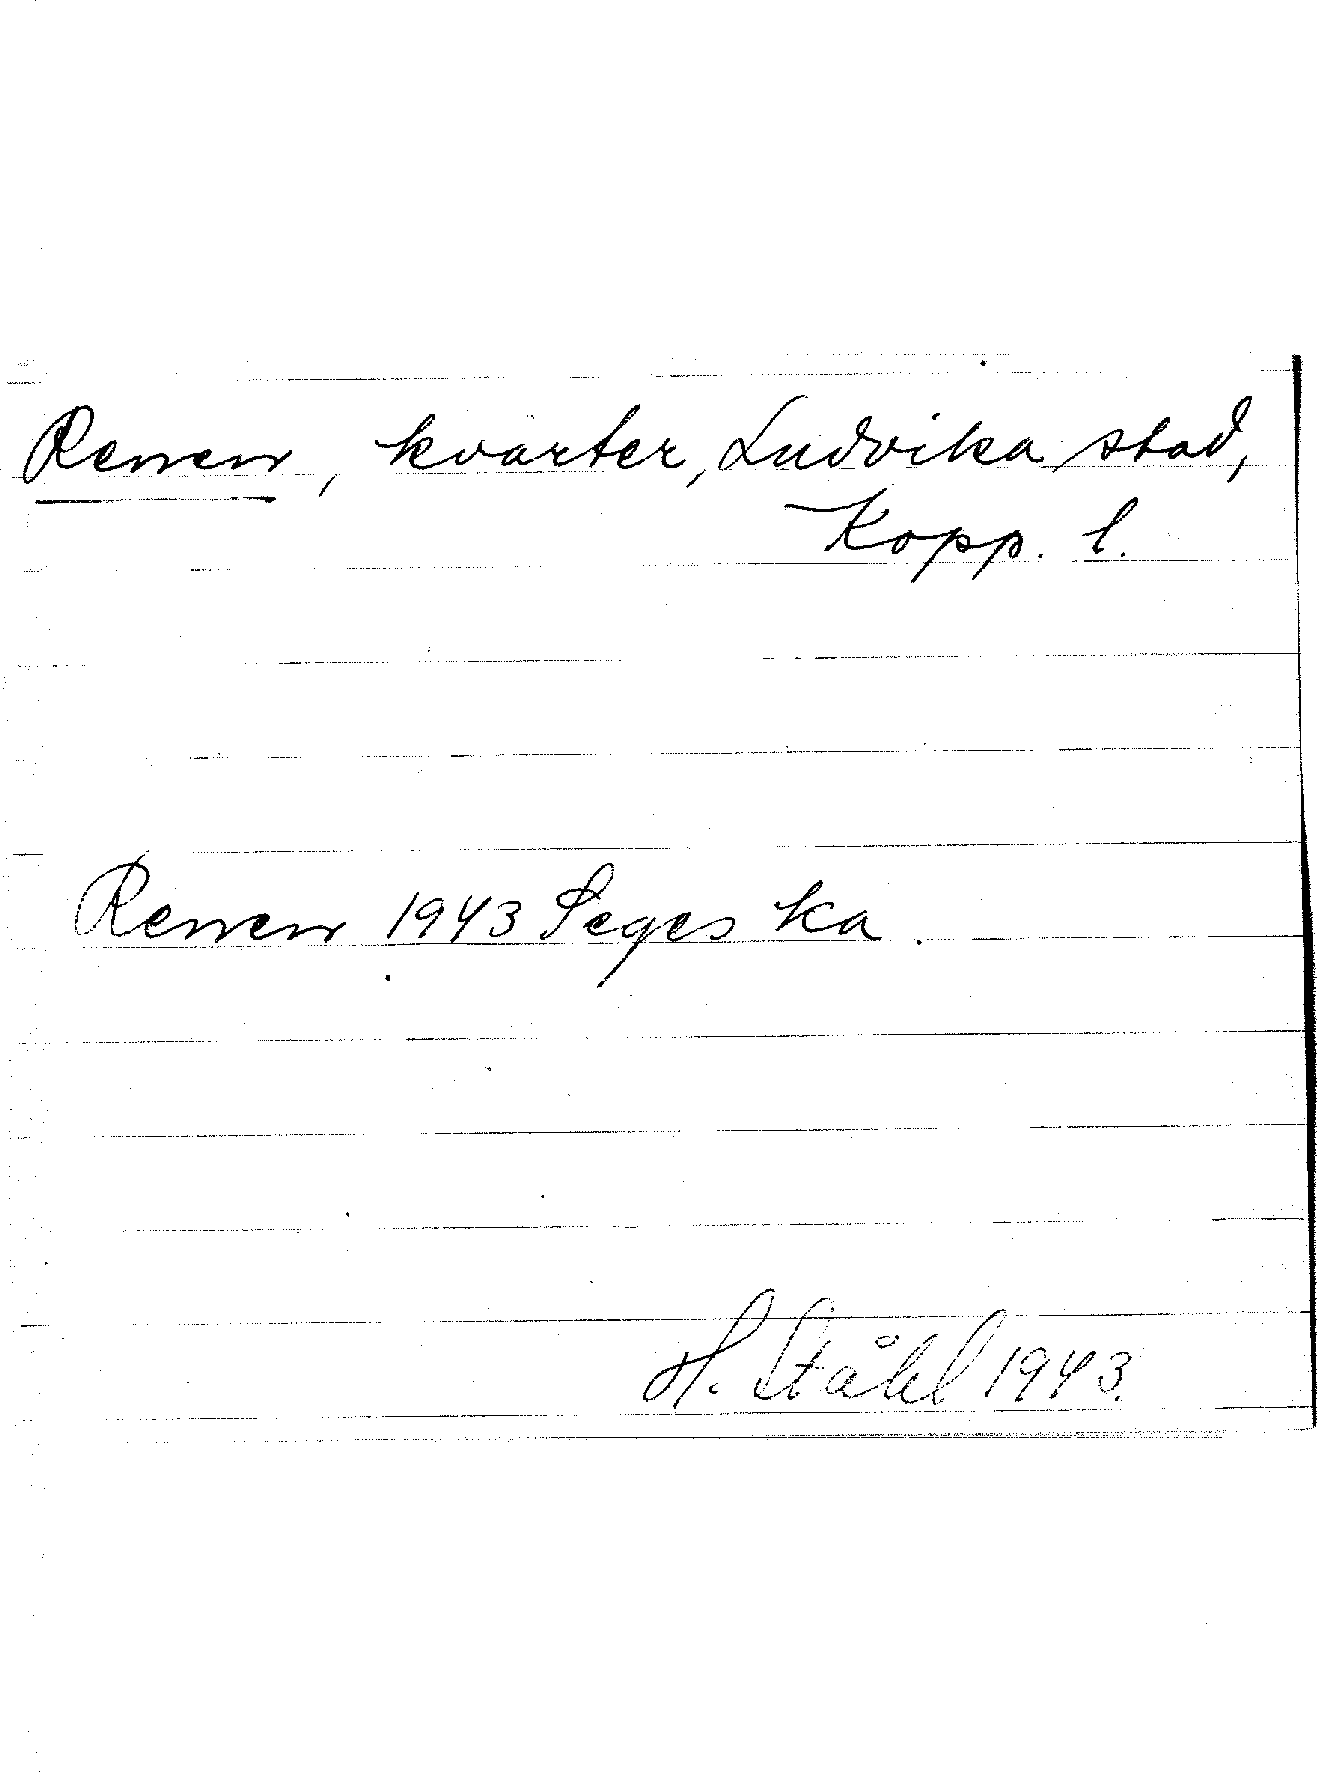 Renen, kvarter, Ludvika stad,
Kopp. l.
Renen 1943 Seges ka.
H. Ståhl 1943.